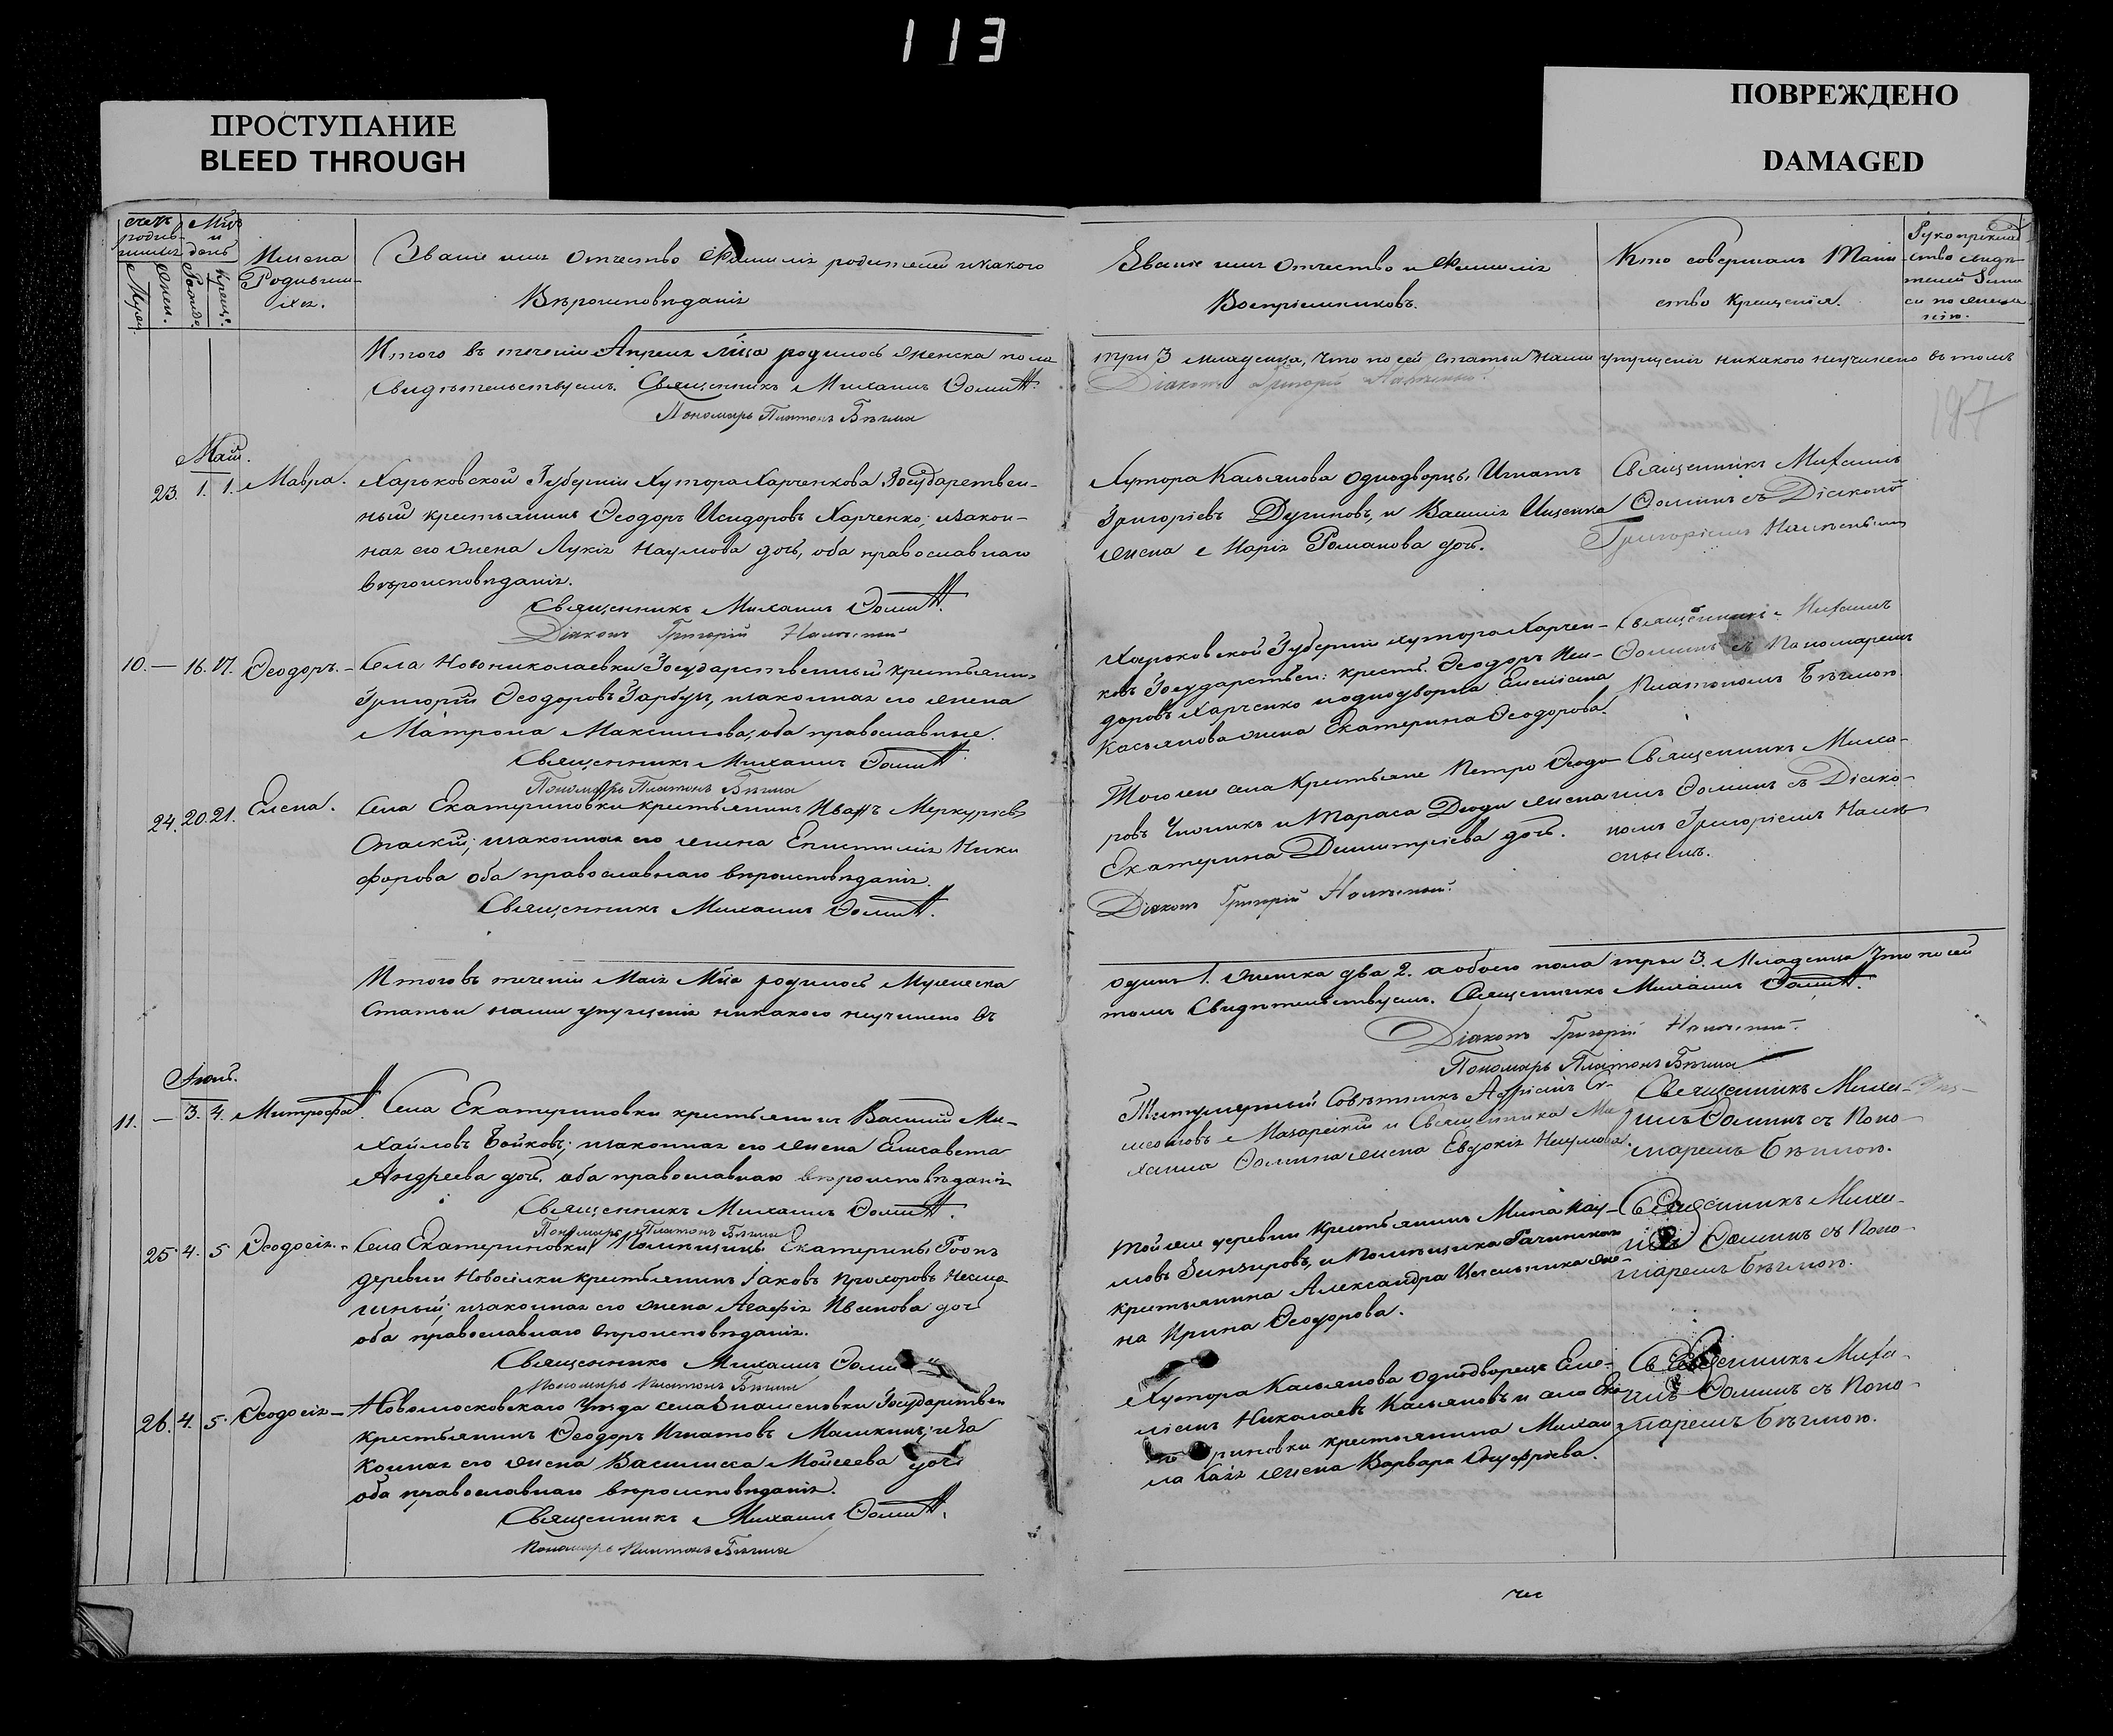 113
ПРОСТУПАНИЕ
BLEED THROUGH
ПОВРЕЖДЕНО
DAMAGED
Имена
Родивши-
ихся.
Званіе имя отчество и фамилія родителей и какого
Вѣроисповѣданія
Званіе имя отчество и фамилія
Воспріемниковъ.
Кто совершалъ Таин-
ство крещенія.
Рукоприклад-
ство свидѣ-
телей записи
по желанію.
Итого въ теченіи Апреля м̃ца родилось женска пола
три 3 младенца, что по сей статьи нами упущенія никакого неучинено въ томъ
Свидѣтельствуемъ. Священникъ Михаилъ Ѳоминъ.
Діаконъ Григорій
Пономарь Платонъ Бѣгма
197
Май.
23. 1. 1. Мавра. Харьковской Губерніи Хутора Харченкова Государствен-
ный крестьянинъ Ѳеодоръ Исидоровъ Харченко, и закон-
ная его жена Лукія Наумова дочь, оба православнаго
вѣроисповѣданія.
Священникъ Михаилъ Ѳоминъ.
Діаконъ Григорій
Хутора Касьянова однодворцъ Игнатъ
Григоріевъ Дугиновъ, и Василія Ищенка
жена Марія Романова дочь.
Священникъ Михаилъ
Ѳоминъ съ Діакономъ
Григоріемъ
10. — 16. 17. Ѳеодоръ. Села Новониколаевки Государственный крестьянинъ
Григорій Ѳеодоровъ Гарбузъ, и законная его жена
Матрона Максимова, оба православные.
Священникъ Михаилъ Ѳоминъ.
Пономарь Платонъ Бѣгма
Харьковской Губерніи хутора Харчен-
ковъ Государствен: крест. Ѳеодоръ Иси-
доровъ Харченко и однодворца Емеліана
Касьянова жена Екатерина Ѳеодорова.
Священникъ Михаилъ
Ѳоминъ съ Пономаремъ
Платономъ Бѣгмою.
24. 20. 21. Елена. Села Екатериновки крестьянинъ Иванъ Меркуріевъ
Спаскій; и законная его жена Епистимія Ники-
форова оба православнаго вѣроисповѣданія.
Священникъ Михаилъ Ѳоминъ.
Того же села крестьяне Петро Ѳеодо-
ровъ и Тараса Дзюди жена
Екатерина Димитріева дочь.
Діаконъ Григорій
Священникъ Миха-
илъ Ѳоминъ съ Діако-
номъ Григоріемъ
Итого въ теченіи Маія М̃ца родилось Мужеска
одинъ 1. женска два 2. а обоего пола три 3. Младенца Что по сей
Статьи нами упущенія никакого неучинено въ
томъ Свидѣтельствуемъ. Священникъ Михаилъ Ѳоминъ.
Діаконъ Григорій
Пономарь Платонъ Бѣгма
Іюнь.
11. — 3. 4. Митрофанъ. Села Екатериновки крестьянинъ Василій Ми-
хайловъ Бойковъ; и законная его жена Елисавета
Андреева дочь. оба православнаго вѣроисповѣданія
Священникъ Михаилъ Ѳоминъ.
Пономарь Платонъ Бѣгма
Титулярный Совѣтникъ
Мазарскій и Священника Ми-
хаила Ѳомина жена Евдокія Наумова.
Священникъ Миха-
илъ Ѳоминъ съ Поно-
маремъ Бѣгмою.
25. 4. 5 Ѳеодосія. Села Екатериновки Помѣщицы Екатерины
деревни Новосілки крестьянинъ Іаковъ Прохоровъ
и законная его жена Агафія Иванова дочь
оба православнаго вѣроисповѣданія.
Священникъ Михаилъ Ѳоми
Пономарь Платонъ Бѣгма
Той же деревни крестьянинъ Мина Нау-
мовъ и Помѣщика
крестьянина Александра же-
на Ирина Ѳеодорова.
Священникъ Миха-
илъ Ѳоминъ съ Поно-
маремъ Бѣгмою.
26. 4. 5. Ѳеодосія Новомосковскаго Уѣзда села Знаменовки Государствен
крестьянинъ Ѳеодоръ Игнатовъ Машкинъ; и за-
конная его жена Василисса Мойсеева дочь
оба православнаго вѣроисповѣданія.
Священникъ Михаилъ Ѳоминъ.
Пономарь Платонъ Бѣгма
Хутора Касьянова однодворецъ Еме-
ліанъ Николаевъ Касьяновъ и села Ека-
териновки крестьянина Михаи-
ла жена Варвара Онуфріева.
Священникъ Миха-
илъ Ѳоминъ съ Поно-
маремъ Бѣгмою.